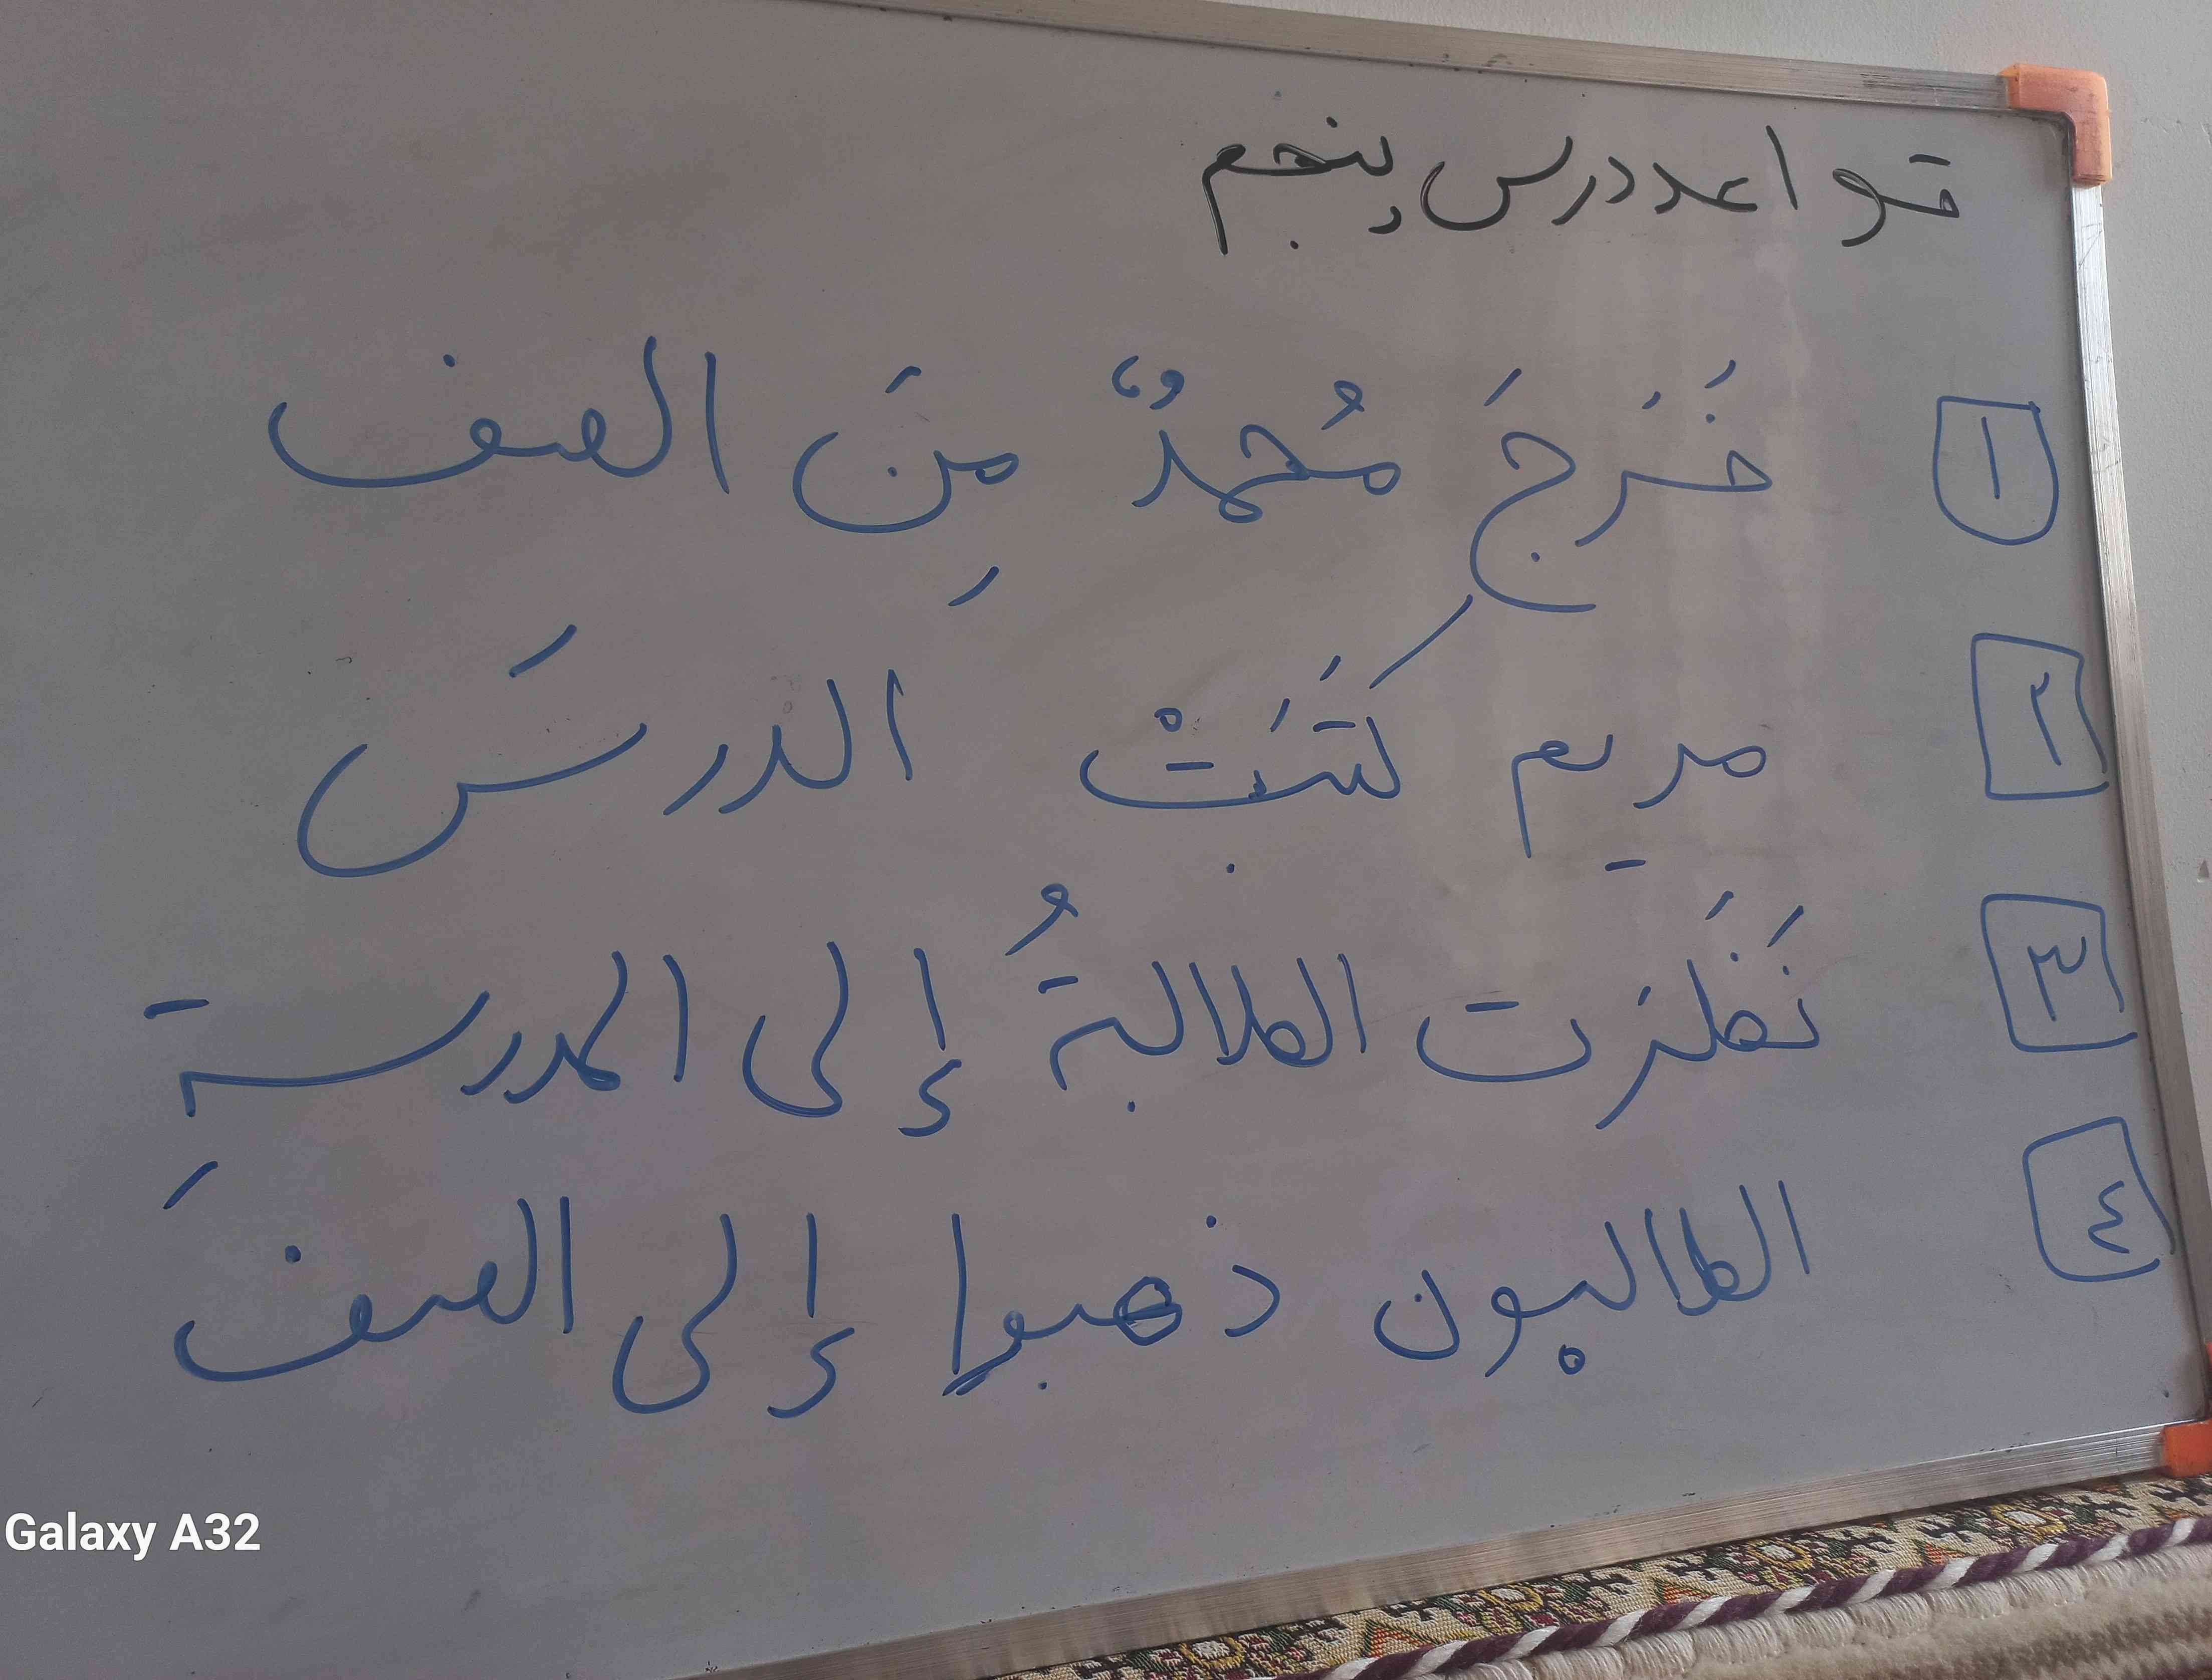 قواعد درس پنجم
١ خَرَجَ مُحمدٌ مِنَ الصف
٢ مریم كَتَبَتْ الدرسَ
٣ نَظَرت الطالبةُ إلى المدرسةِ
٤ الطالبون ذهبوا إلى الصف
Galaxy A32